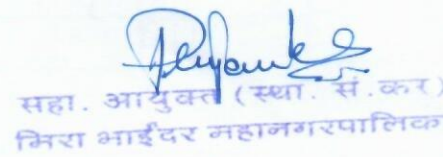 सहा. आयुक्त (स्था. सं. कर)
मिरा भाईंदर महानगरपालिका